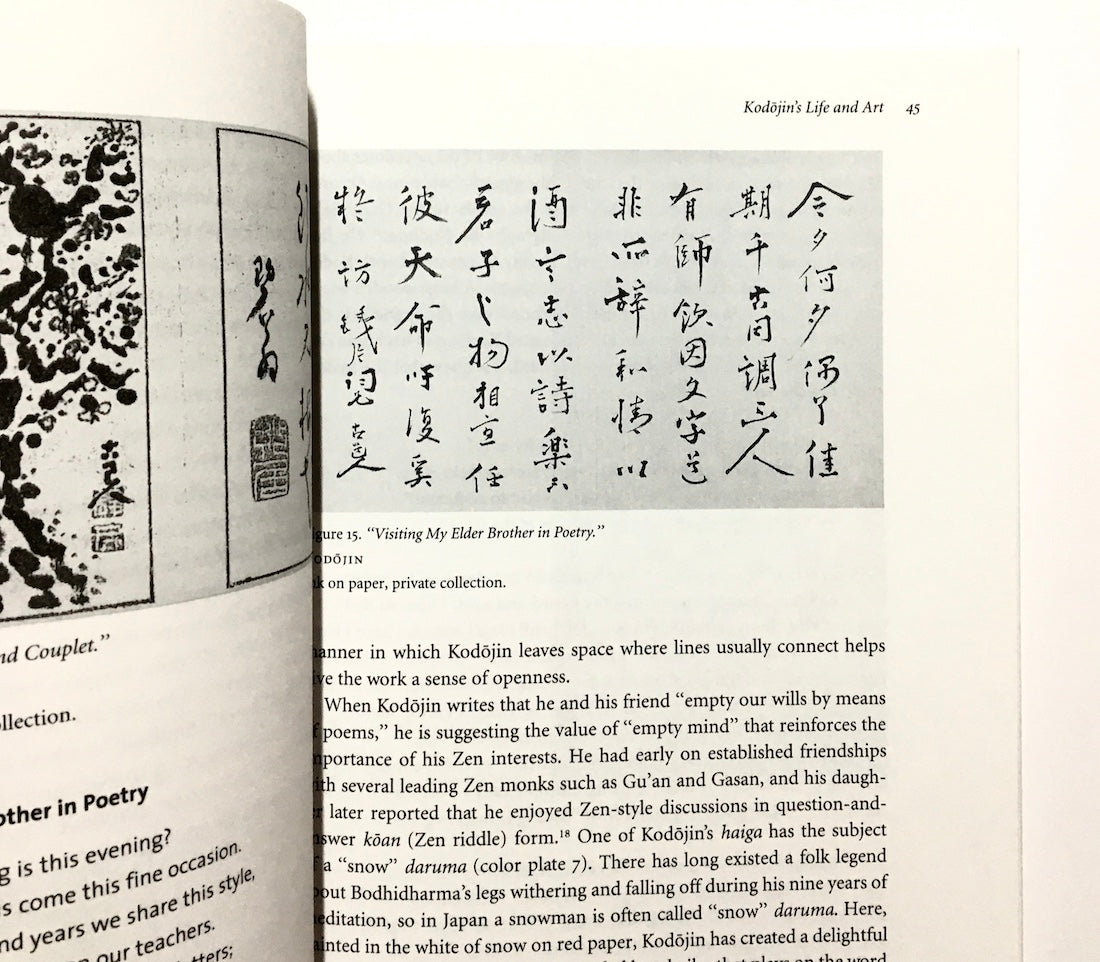 nd Couplet."
llection.
other in Poetry
g is this evening?
s come this fine occasion.
nd years we share this style,
n our teachers.
tters;
Kodōjin's Life and Art 45
今夕何夕偶丫佳
期千古同調三人
有師飲因文字
非所辭和情以
酒言志以詩樂只
君子之物相宜任
彼天命吁復奚
訪
gure 15. "Visiting My Elder Brother in Poetry."
ODŌJIN
k on paper, private collection.
anner in which Kodōjin leaves space where lines usually connect helps
ve the work a sense of openness.
When Kodōjin writes that he and his friend "empty our wills by means
f poems," he is suggesting the value of "empty mind" that reinforces the
portance of his Zen interests. He had early on established friendships
ith several leading Zen monks such as Gu'an and Gasan, and his daugh-
r later reported that he enjoyed Zen-style discussions in question-and-
nswer kōan (Zen riddle) form.¹⁸ One of Kodōjin's haiga has the subject
f a "snow" daruma (color plate 7). There has long existed a folk legend
bout Bodhidharma's legs withering and falling off during his nine years of
editation, so in Japan a snowman is often called "snow" daruma. Here,
ainted in the white of snow on red paper, Kodōjin has created a delightful